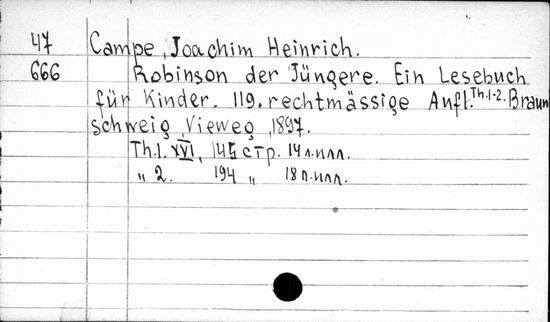 47 Campe, Joachim Heinrich.
666 Robinson der Jüngere. Ein Lesebuch
für Kinder. 119. rechtmässige Aufl. Th.1-2. Braun
schweig, Vieweg, 1897.
Th.1. XVI, 145 стр. 14 л.илл.
„ 2. 194 „ 18 л.илл.